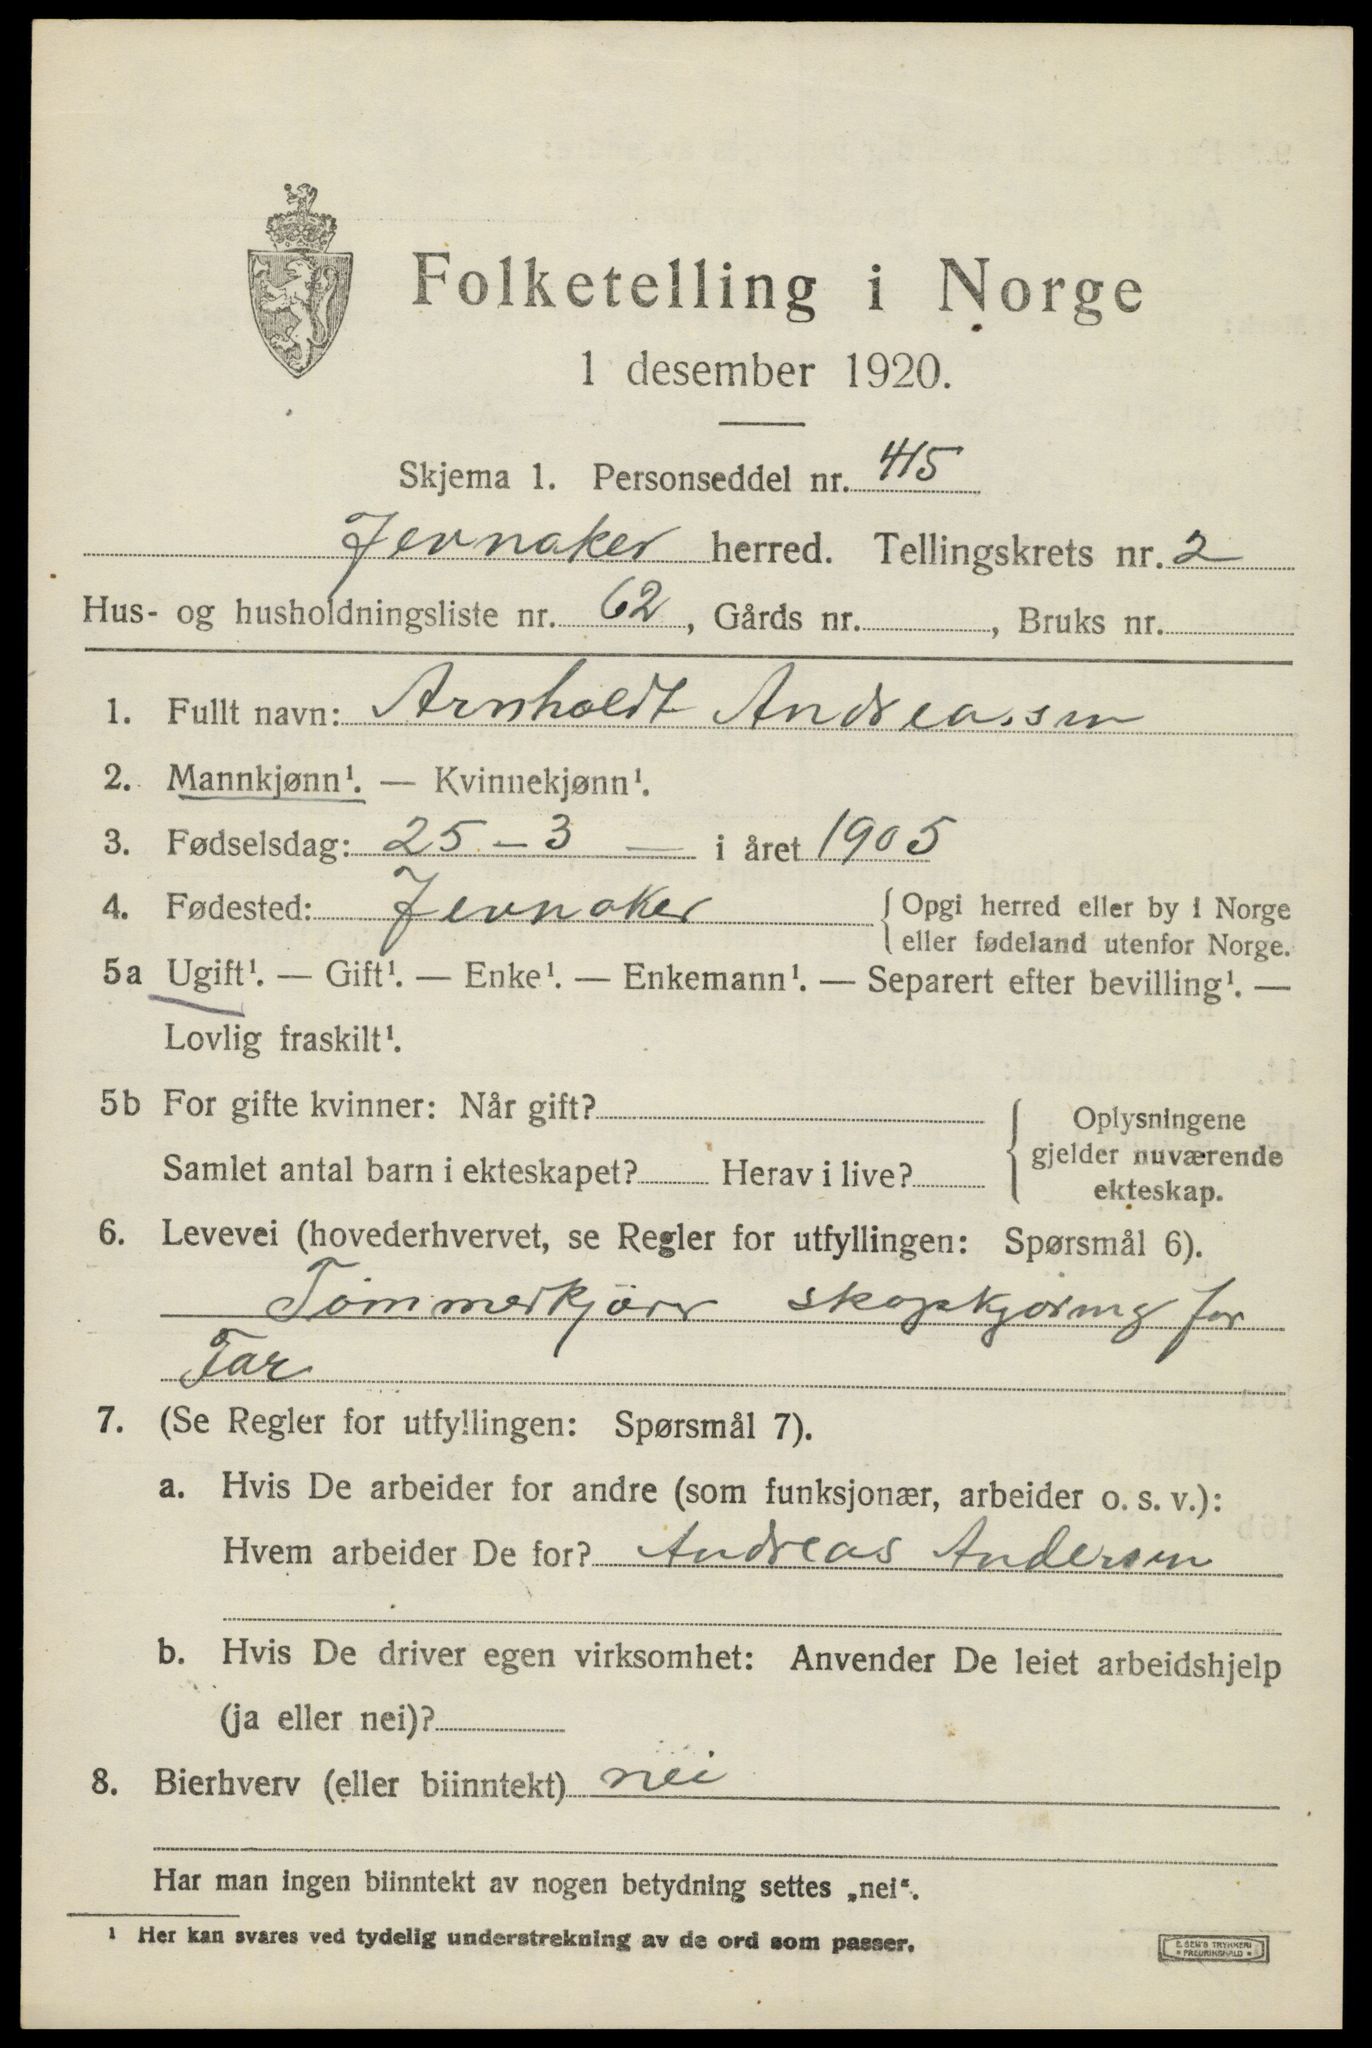 Folketelling i Norge
1 desember 1920.
Skjema 1. Personseddel nr. 415
Jevnaker herred. Tellingskrets nr. 2
Hus- og husholdningsliste nr. 62, Gårds nr. , Bruks nr.
1. Fullt navn: Arnholdt Andreassen
2. Mannkjønn¹. — Kvinnekjønn¹.
3. Fødselsdag: 25 - 3 — i året 1905
4. Fødested: Jevnaker { Opgi herred eller by i Norge
eller fødeland utenfor Norge.
5a Ugift¹. — Gift¹. — Enke¹. — Enkemann¹. — Separert efter bevilling¹. —
Lovlig fraskilt¹.
5b For gifte kvinner: Når gift? { Oplysningene
gjelder nuværende
ekteskap.
Samlet antal barn i ekteskapet? Herav i live?
6. Levevei (hovederhvervet, se Regler for utfyllingen: Spørsmål 6).
Tömmerkjörer skogskjoring for
Far
7. (Se Regler for utfyllingen: Spørsmål 7).
a. Hvis De arbeider for andre (som funksjonær, arbeider o. s. v.):
Hvem arbeider De for? Andreas Andersen
b. Hvis De driver egen virksomhet: Anvender De leiet arbeidshjelp
(ja eller nei)?
8. Bierhverv (eller biinntekt) nei
Har man ingen biinntekt av nogen betydning settes „nei“.
¹ Her kan svares ved tydelig understrekning av de ord som passer.
E. SEM'S TRYKKERI
FREDRIKSHALD